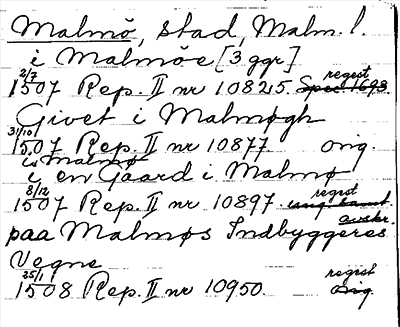 Malmö, stad, Malm. l.
i Malmöe [3 ggr]
2/7 regest
1507 Rep. II nr 10825. Spec 1693
Givet i Malmøgh
31/10
1507 Rep. II nr 10877. orig.
i Malmø
i en Gaard i Malmø
8/12 regest
1507 Rep. II nr 10897.
avskr.
paa Malmøs Indbyggeres
Vegne
25/1 regest
1508 Rep. II nr 10950. orig